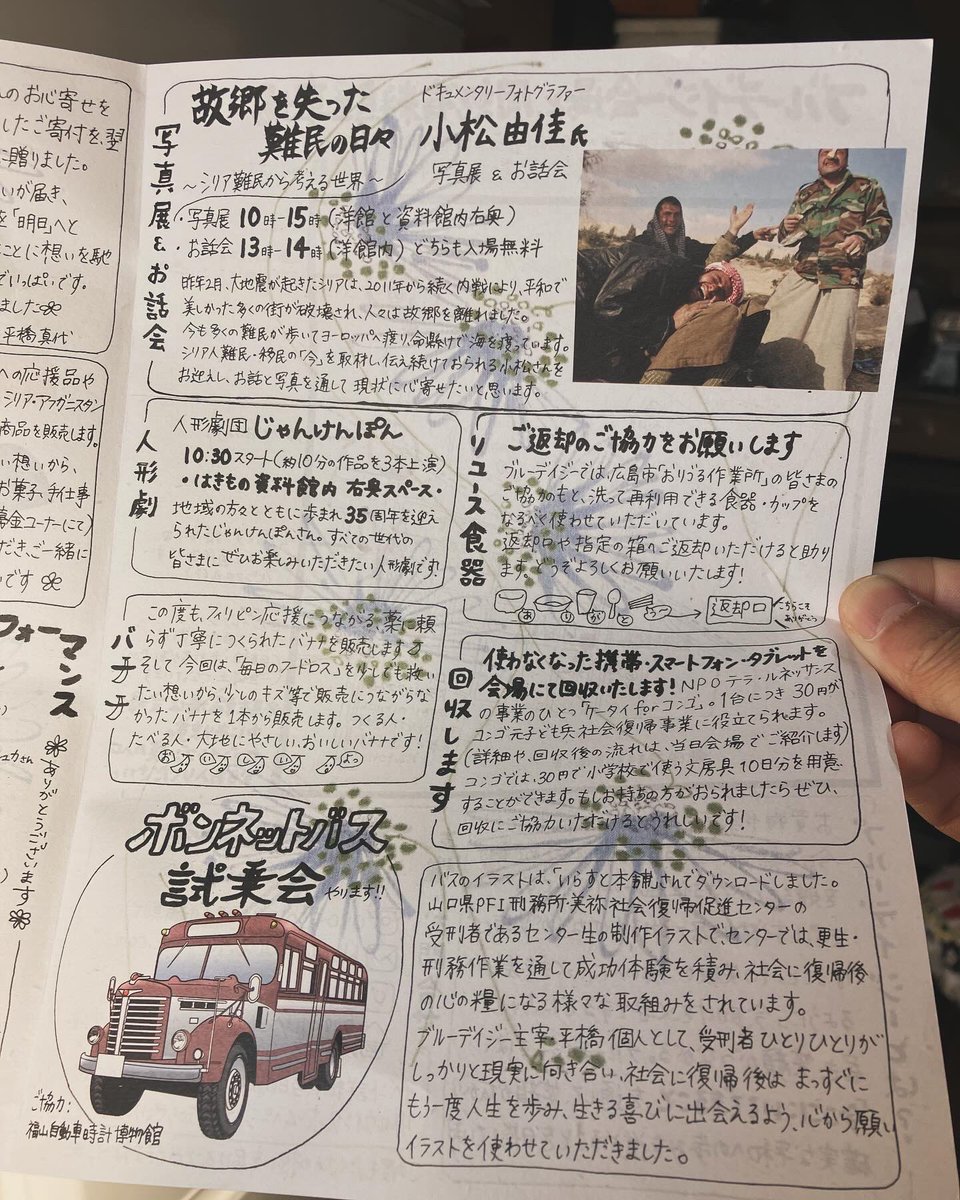 のお心寄せを
したご寄付を、翌
に贈りました。
いが届き、
「明日」へと
ことに想いを馳
でいっぱいです。
ました
平橋真代
への応援品や
シリア・アフガニスタン
商品を販売します。
い想いから、
お菓子、手仕事
募金コーナーにて)
だき、ご一緒に
いです
フォーマンス
ありがとうございます
写真展&お話会
故郷を失った
難民の日々
ドキュメンタリーフォトグラファー
小松由佳氏
写真展 & お話会
～シリア難民から考える世界～
・写真展 10時-15時(洋館と資料館内右奥)
・お話会 13時-14時(洋館内)どちらも入場無料
昨年2月、大地震が起きたシリアは、2011年から続く内戦により、平和で
美しかった多くの街が破壊され、人々は故郷を離れました。
今も多くの難民が歩いてヨーロッパへ渡り、命懸けで海を渡っています。
シリア人難民・移民の「今」を取材し、伝え続けておられる小松さんを
お迎えし、お話と写真を通して現状に心寄せたいと思います。
人形劇
人形劇団 じゃんけんぽん
10:30スタート(約10分の作品を3本上演)
・はきもの資料館内 右奥スペース・
地域の方々とともに歩まれ35周年を迎え
られたじゃんけんぽんさん。すべての世代の
皆さまにぜひお楽しみいただきたい人形劇です!
リユース食器
ご返却のご協力をお願いします
ブルーデイジーでは、広島市「おりづる作業所」の皆さまの
ご協力のもと、洗って再利用できる食器・カップを
なるべく使わせていただいています。
返却口や指定の箱へご返却いただけると助かり
ます。どうぞよろしくお願いいたします!
返却口
こちらこそ
ありがとう
バナナ
この度も、フィリピン応援につながる、薬に頼
らず丁寧につくられたバナナを販売します
そして今回は、「毎日のフードロス」を少しでも救い
たい想いから、少しのキズ等で販売につながらな
かったバナナを1本から販売します。つくる人・
たべる人・大地にやさしい、おいしいバナナです!
おいしいよっ
回収します
使わなくなった携帯・スマートフォン・タブレットを
会場にて回収いたします! NPOテラ・ルネッサンス
の事業のひとつ「ケータイforコンゴ」。1台につき30円が
コンゴ元子ども兵社会復帰事業に役立てられます。
(詳細や回収後の流れは、当日会場でご紹介します)
コンゴでは、30円で小学校で使う文房具10日分を用意
することができます。もしお持ちの方がおられましたらぜひ、
回収にご協力いただけるとうれしいです!
ボンネットバス
試乗会 やります!!
ご協力:
福山自動車時計博物館
バスのイラストは、「いらすと本舗」さんでダウンロードしました。
山口県PFI刑務所・美祢社会復帰促進センターの
受刑者であるセンター生の制作イラストで、センターでは、更生・
刑務作業を通して成功体験を積み、社会に復帰後
の心の糧になる様々な取組みをされています。
ブルーデイジー主宰・平橋個人として、受刑者ひとりひとりが
しっかりと現実に向き合い、社会に復帰後はまっすぐに
もう一度人生を歩み、生きる喜びに出会えるよう、心から願い
イラストを使わせていただきました。